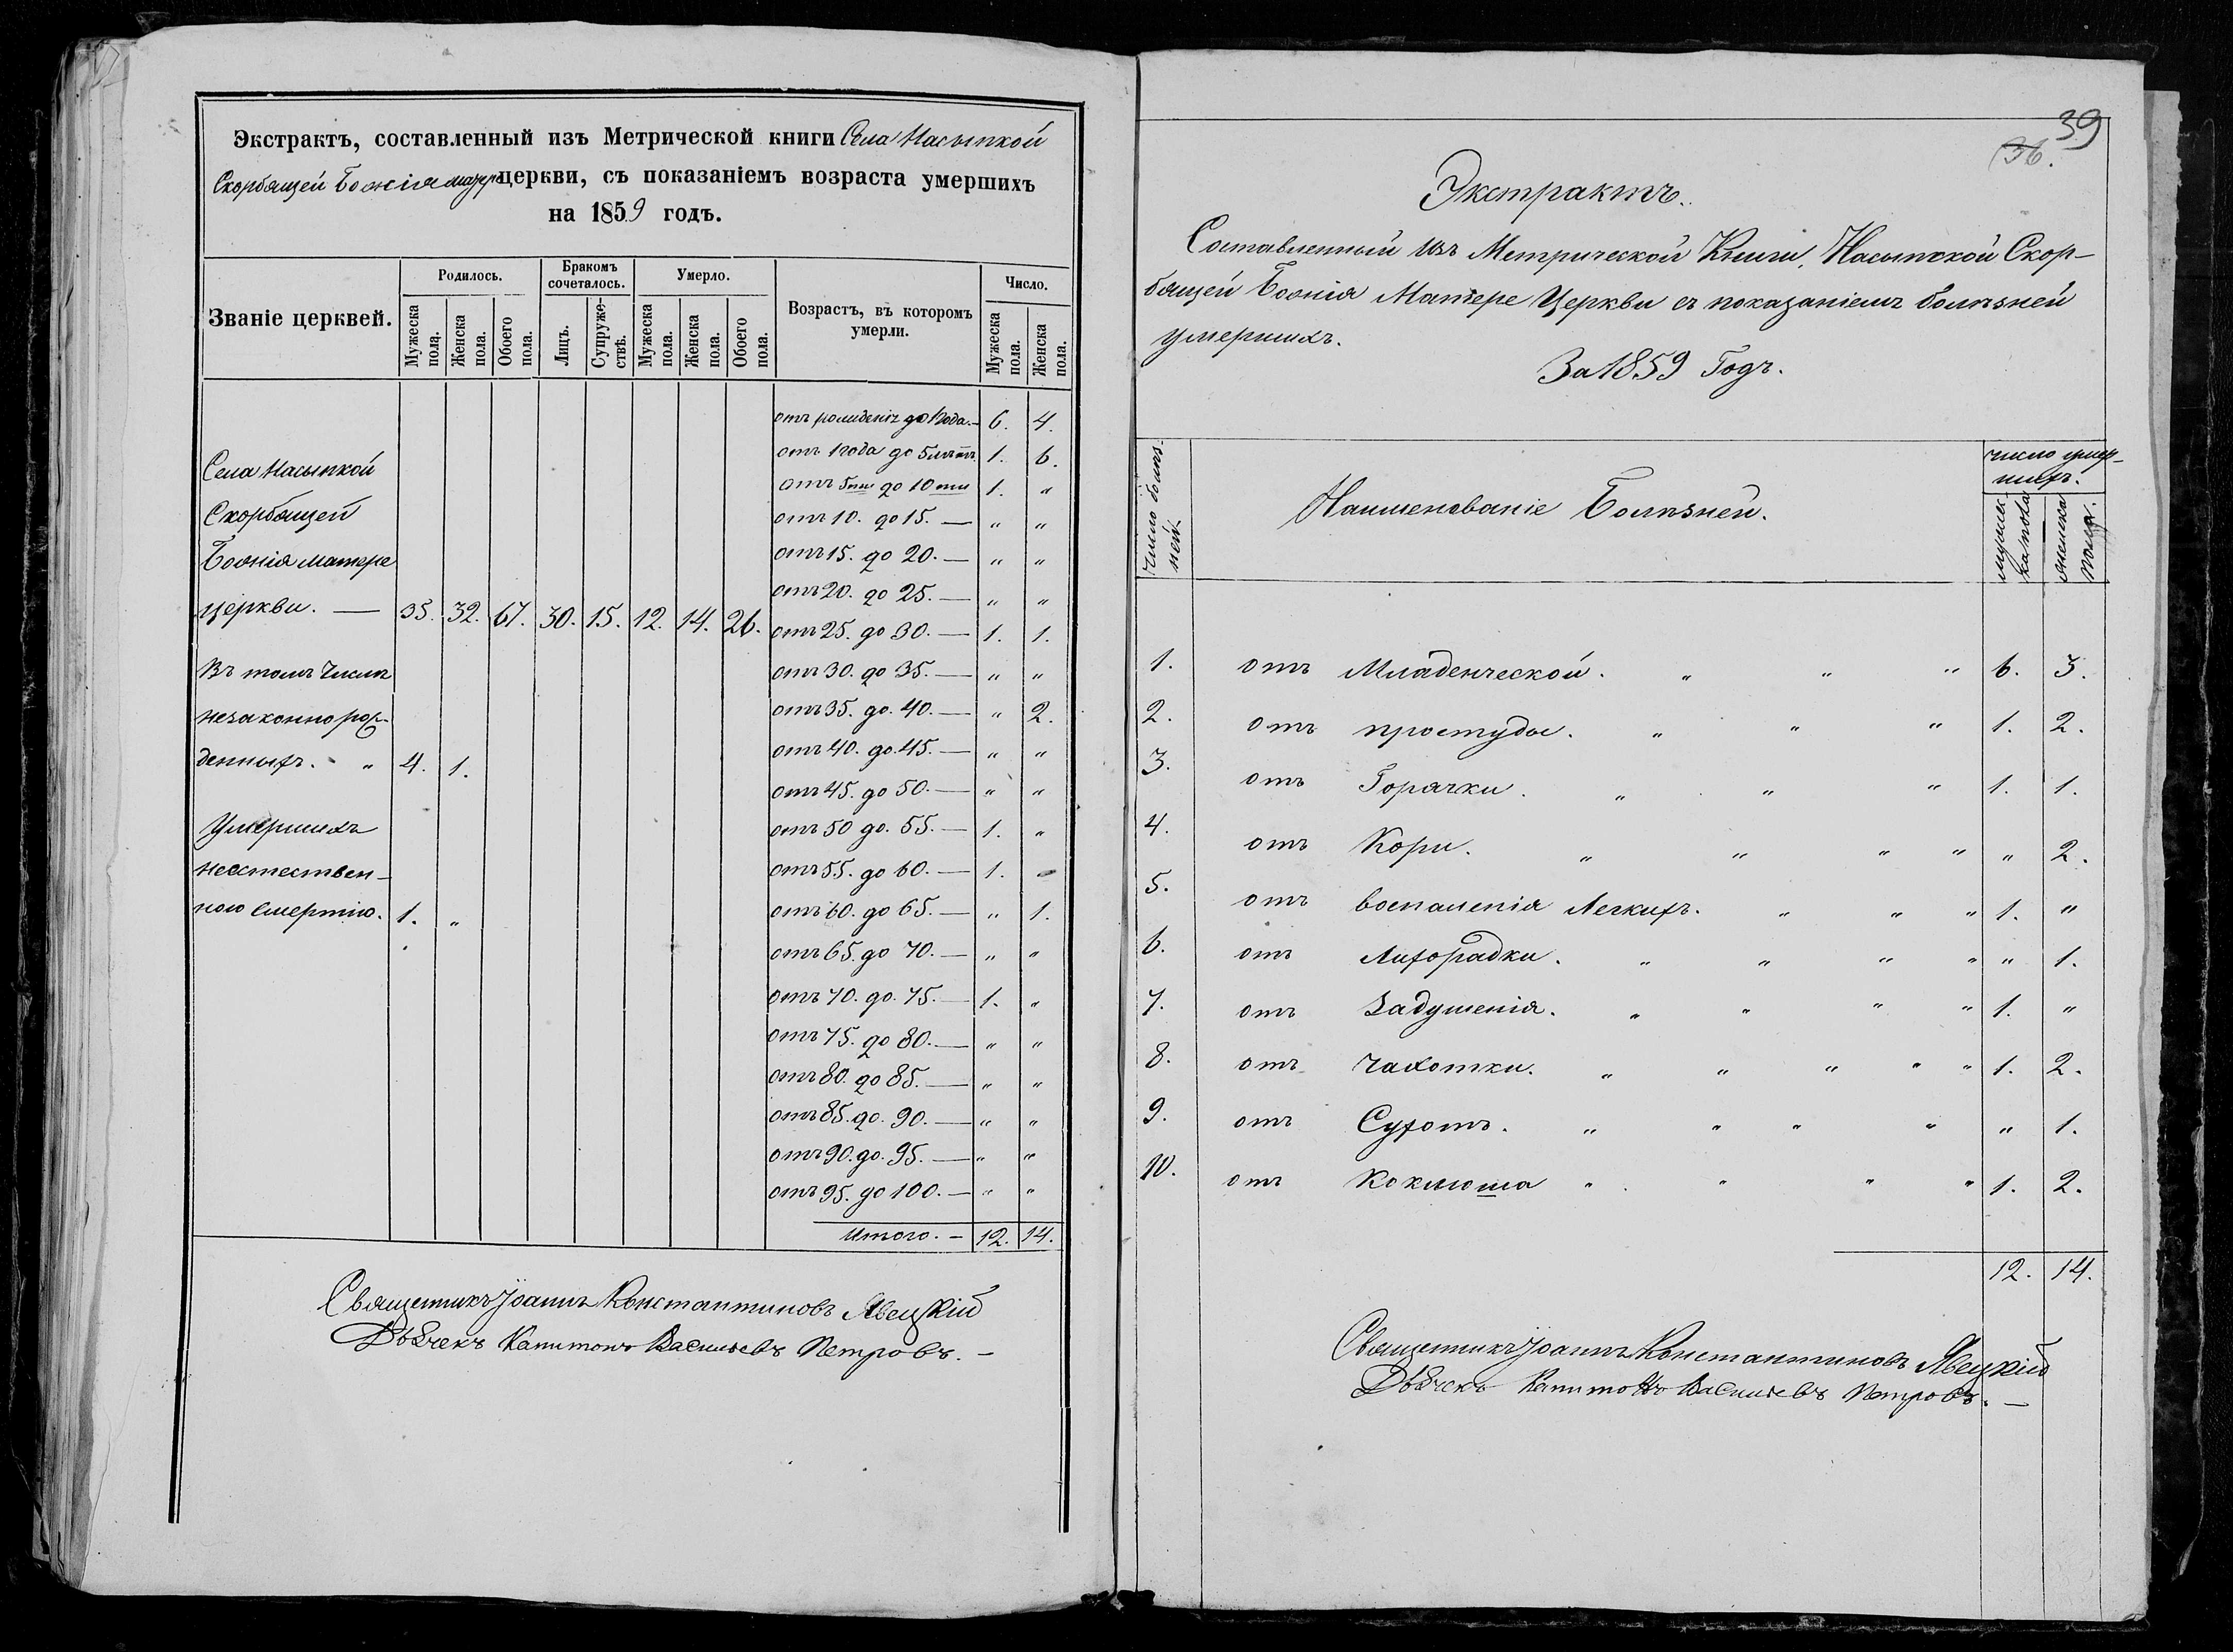 Экстрактъ, составленный изъ Метрической книги Села Насыпкой
Скорбящей Божія матере церкви, съ показаніемъ возраста умершихъ
на 1859 годъ.
Званіе церквей.
Родилось.
Бракомъ сочеталось.
Умерло.
Возрастъ, въ которомъ умерли.
Число.
Мужеска пола.
Женска пола.
Обоего пола.
Лицъ.
Супружествѣ.
Мужеска пола.
Женска пола.
Обоего пола.
Мужеска пола.
Женска пола.
Села Насыпкой
Скорбящей
Божія матере
церкви. — 35. 32. 67. 30. 15. 12. 14. 26.
Въ томъ числѣ
незаконнорож-
денныхъ. „ 4. 1.
Умершихъ
неестествен-
ною смертію. 1. „
отъ рожденія до 1 года. — 6. 4.
отъ 1 года до 5 лѣтъ 1. 6.
отъ 5ти до 10ти 1. „
отъ 10. до 15. — „ „
отъ 15. до 20. — „ „
отъ 20. до 25. — „ „
отъ 25. до 30. — 1. 1.
отъ 30. до 35. — „ „
отъ 35. до. 40. — „ 2.
отъ 40. до. 45. — „ „
отъ 45. до 50. — „ „
отъ 50 до. 55. — 1. „
отъ 55. до 60. — 1. „
отъ 60. до 65. — „ 1.
отъ 65. до 70. — „ „
отъ 70. до. 75. — 1. „
отъ 75. до 80. — „ „
отъ 80. до 85. — „ „
отъ 85. до. 90. — „ „
отъ 90. до. 95. — „ „
отъ 95. до 100. — „ „
Итого. — 12. 14.
Священникъ Іоаннъ Константиновъ Явецкій
Дьячекъ Капитонъ Васильевъ Петровъ. —
39
36.
Экстрактъ.
Составленный изъ Метрической Книги, Насыпкой Скор-
бящей Божія Матере Церкви съ показаніемъ болѣзней
умершихъ.
За 1859 Годъ.
Число болѣз-
ней.
Наименованіе Болѣзней.
число умер-
шихъ.
мужес-
ка пола
женска
пола.
1. отъ Младенческой. „ „ „ 6. 3.
2. отъ простуды. „ „ „ 1. 2.
3. отъ Горячки. „ „ „ 1. 1.
4. отъ Кори. „ „ „ „ „ 2.
5. отъ воспаленія Легкихъ. „ „ „ 1. „
6. отъ Лихорадки. „ „ „ „ „ 1.
7. отъ Задушенія. „ „ „ „ 1. „
8. отъ Чахотки. „ „ „ „ „ 1. 2.
9. отъ Сухотъ. „ „ „ „ „ 1.
10. отъ Коклюша „ „ „ „ 1. 2.
12. 14.
Священникъ Іоаннъ Константиновъ Явецкій
Дьячекъ Капитонъ Васильевъ Петровъ. —